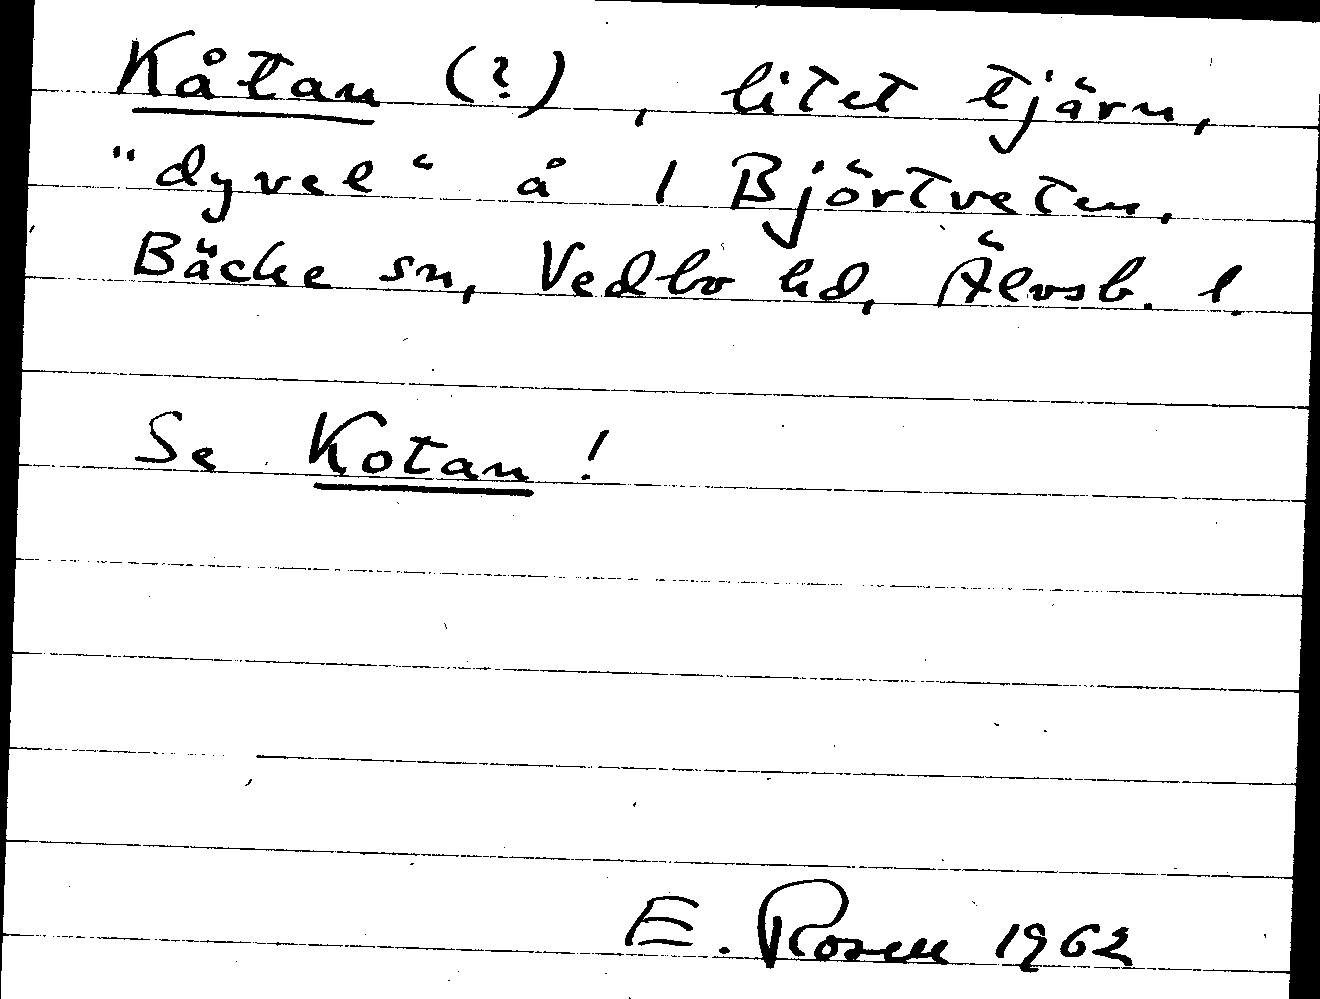 Kåtan (?), litet tjärn,
"dyvel" å 1 Björtveten,
Bäcke sn, Vedbo hd, Älvsb. l.
Se Kotan!
E. Rosell 1962